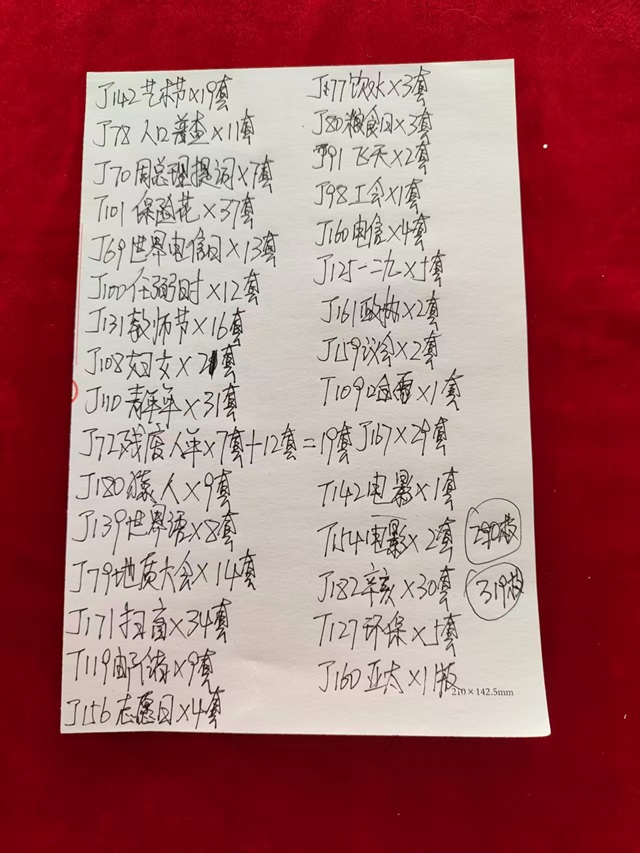 J142艺术节×19套
J78人口普查×11套
J70周总理提词×7套
T101保险花×37套
J69世界电信日×13套
J100任弼时×12套
J131教师节×16套
J108妇女×2套
J110青年年×31套
J72残废人年×7套+12套=19套
J180猿人×9套
J139世界语×8套
J79地质大会×14套
J171扫盲×34套
T119邮储×9套
J156志愿日×4套
J77饮水×3套
J80粮食日×3套
J91飞天×2套
J98工会×1套
J160电信×4套
J125一二九×5套
J161政协×2套
J159议会×2套
T109哈雷×1套
J167×29套
T142电影×1套
T154电影×2套
290枚
J182辛亥×30套
319枚
T127环保×5套
J160亚太×1版
210×142.5mm